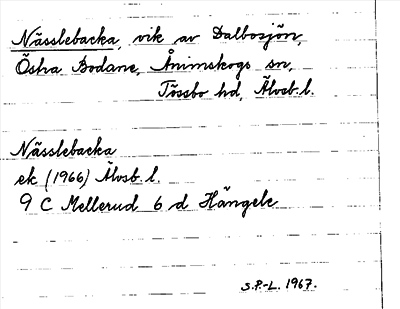 Nässlebacka, vik av Dalbosjön,
Östra Bodane, Ånimskogs sn,
Tössbo hd, Älvsb. l.
Nässlebacka
ek (1966) Älvsb l.
9 C Mellerud 6 d Hängele
S.P.-L. 1967.